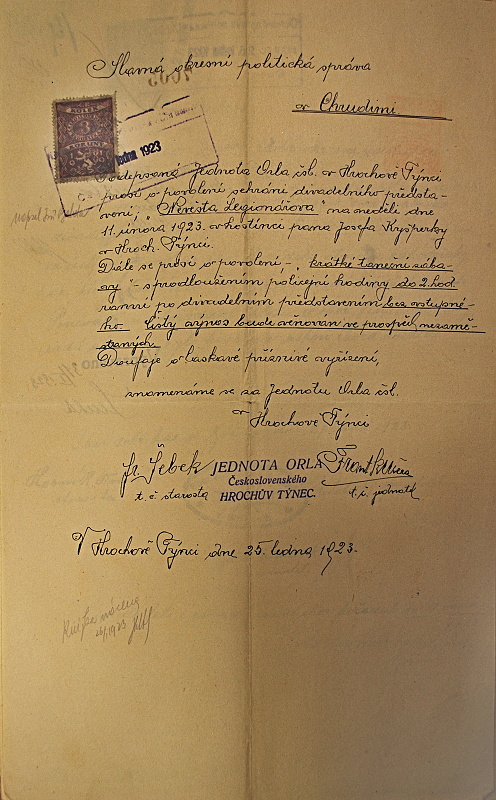 Slavná okresní politická správa
v Chrudimi.
KOLEK
ledna 1923
Podepsaná Jednota Orla čsl. v Hrochově Týnci
prosí o povolení sehrání divadelního předsta-
vení; „Nevěsta Legionářova" na neděli dne
11. února 1923 v hostinci pana Josefa Kyšperky
v Hroch. Týnci.
Dále se prosí o povolení – „krátké taneční zába-
vy" – s prodloužením policejní hodiny do 2. hod.
ranní po divadelním představením bez vstupné-
ho. Čistý výnos bude věnován ve prospěch nezamě-
stnaných.
Doufaje v laskavé příznivé vyřízení,
znamenáme se za Jednotu Orla čsl.
v Hrochově Týnci
Fr. Šebek
t. č. starosta
JEDNOTA ORLA
Československého
HROCHŮV TÝNEC.
t. č. jednatel
V Hrochově Týnci dne 25. ledna 1923.